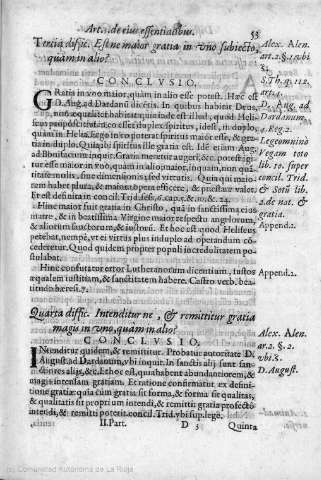 Art. de eius essentialibus. 53
Tertia diffic. Est ne maior gratia in vno subiecto,
quàm in alio?
CONCLVSIO.
GRatia in vno maior, quàm in alio esse potest. Hæc est
D. Aug. ad Dardanũ dicẽtis. In quibus habitat Deus,
non æqualiter habitat: quia inde est illud, quod Heliseus
in duplo. Quia ibi spiritus ille gratia est. Idẽ etiam Aug.
ad Bonifacium inquit. Gratia meretur augeri, &c. potest igitur
esse maior in vno, quàm in alio
rem habet pluta, & maiora opera efficere, & præstare valet.
Et est definita in concil. Trid. sess. 6. cap. 7. & 10. & can. 24.
Hinc maior fuit gratia in Christo, quàm in sanctissima eius
matre, & in beatissima Virgine maior respectu angelorum,
& aliorum sanctorum, & iustorũ. Et hoc est quod Heliseus
petebat, nempè, vt ei virtus plus in duplo ad operandũ concederetur.
Quod quidem propter populi incredulitatem postulabat.
Hinc confutatur error Lutheranorum dicentium, iustos
æqualem iustitiam, & sanctitatem habere. Castro verb. beatitudo
hæresi. 7.
Quarta diffic. Intenditur ne, & remittitur gratia
magis in vno, quàm in alio?
CONCLVSIO.
INtenditur quidem, & remittitur. Probatur autoritate D.
August. ad Dardanum, vbi inquit. In sanctis alij sunt sanctiores
alijs, &c. Et hoc est, quia habent abundantiorem, &
magis intensam gratiam. Et ratione confirmatur ex definitione
gratiæ: quia cùm gratia sit forma, & forma sit qualitas,
& qualitatis sit proprium intendi, & remitti: gratia profectò
intendi, & remitti poterit: concil. Trid. vbi sup. lege.
II. Part. D 3 Quinta
Alex. Alen.
art. 2. §. 1. vbi
D. Aug. ad
Dardanum.
4. Reg. 2.
lib. 10. super
concil. Trid.
& Sotũ lib.
2. de nat. &
gratia.
Append. 1.
Append. 2.
Alex. Alen.
ar. 2. §. 2.
vbi s.
D. August.
(c) Comunidad Autónoma de La Rioja